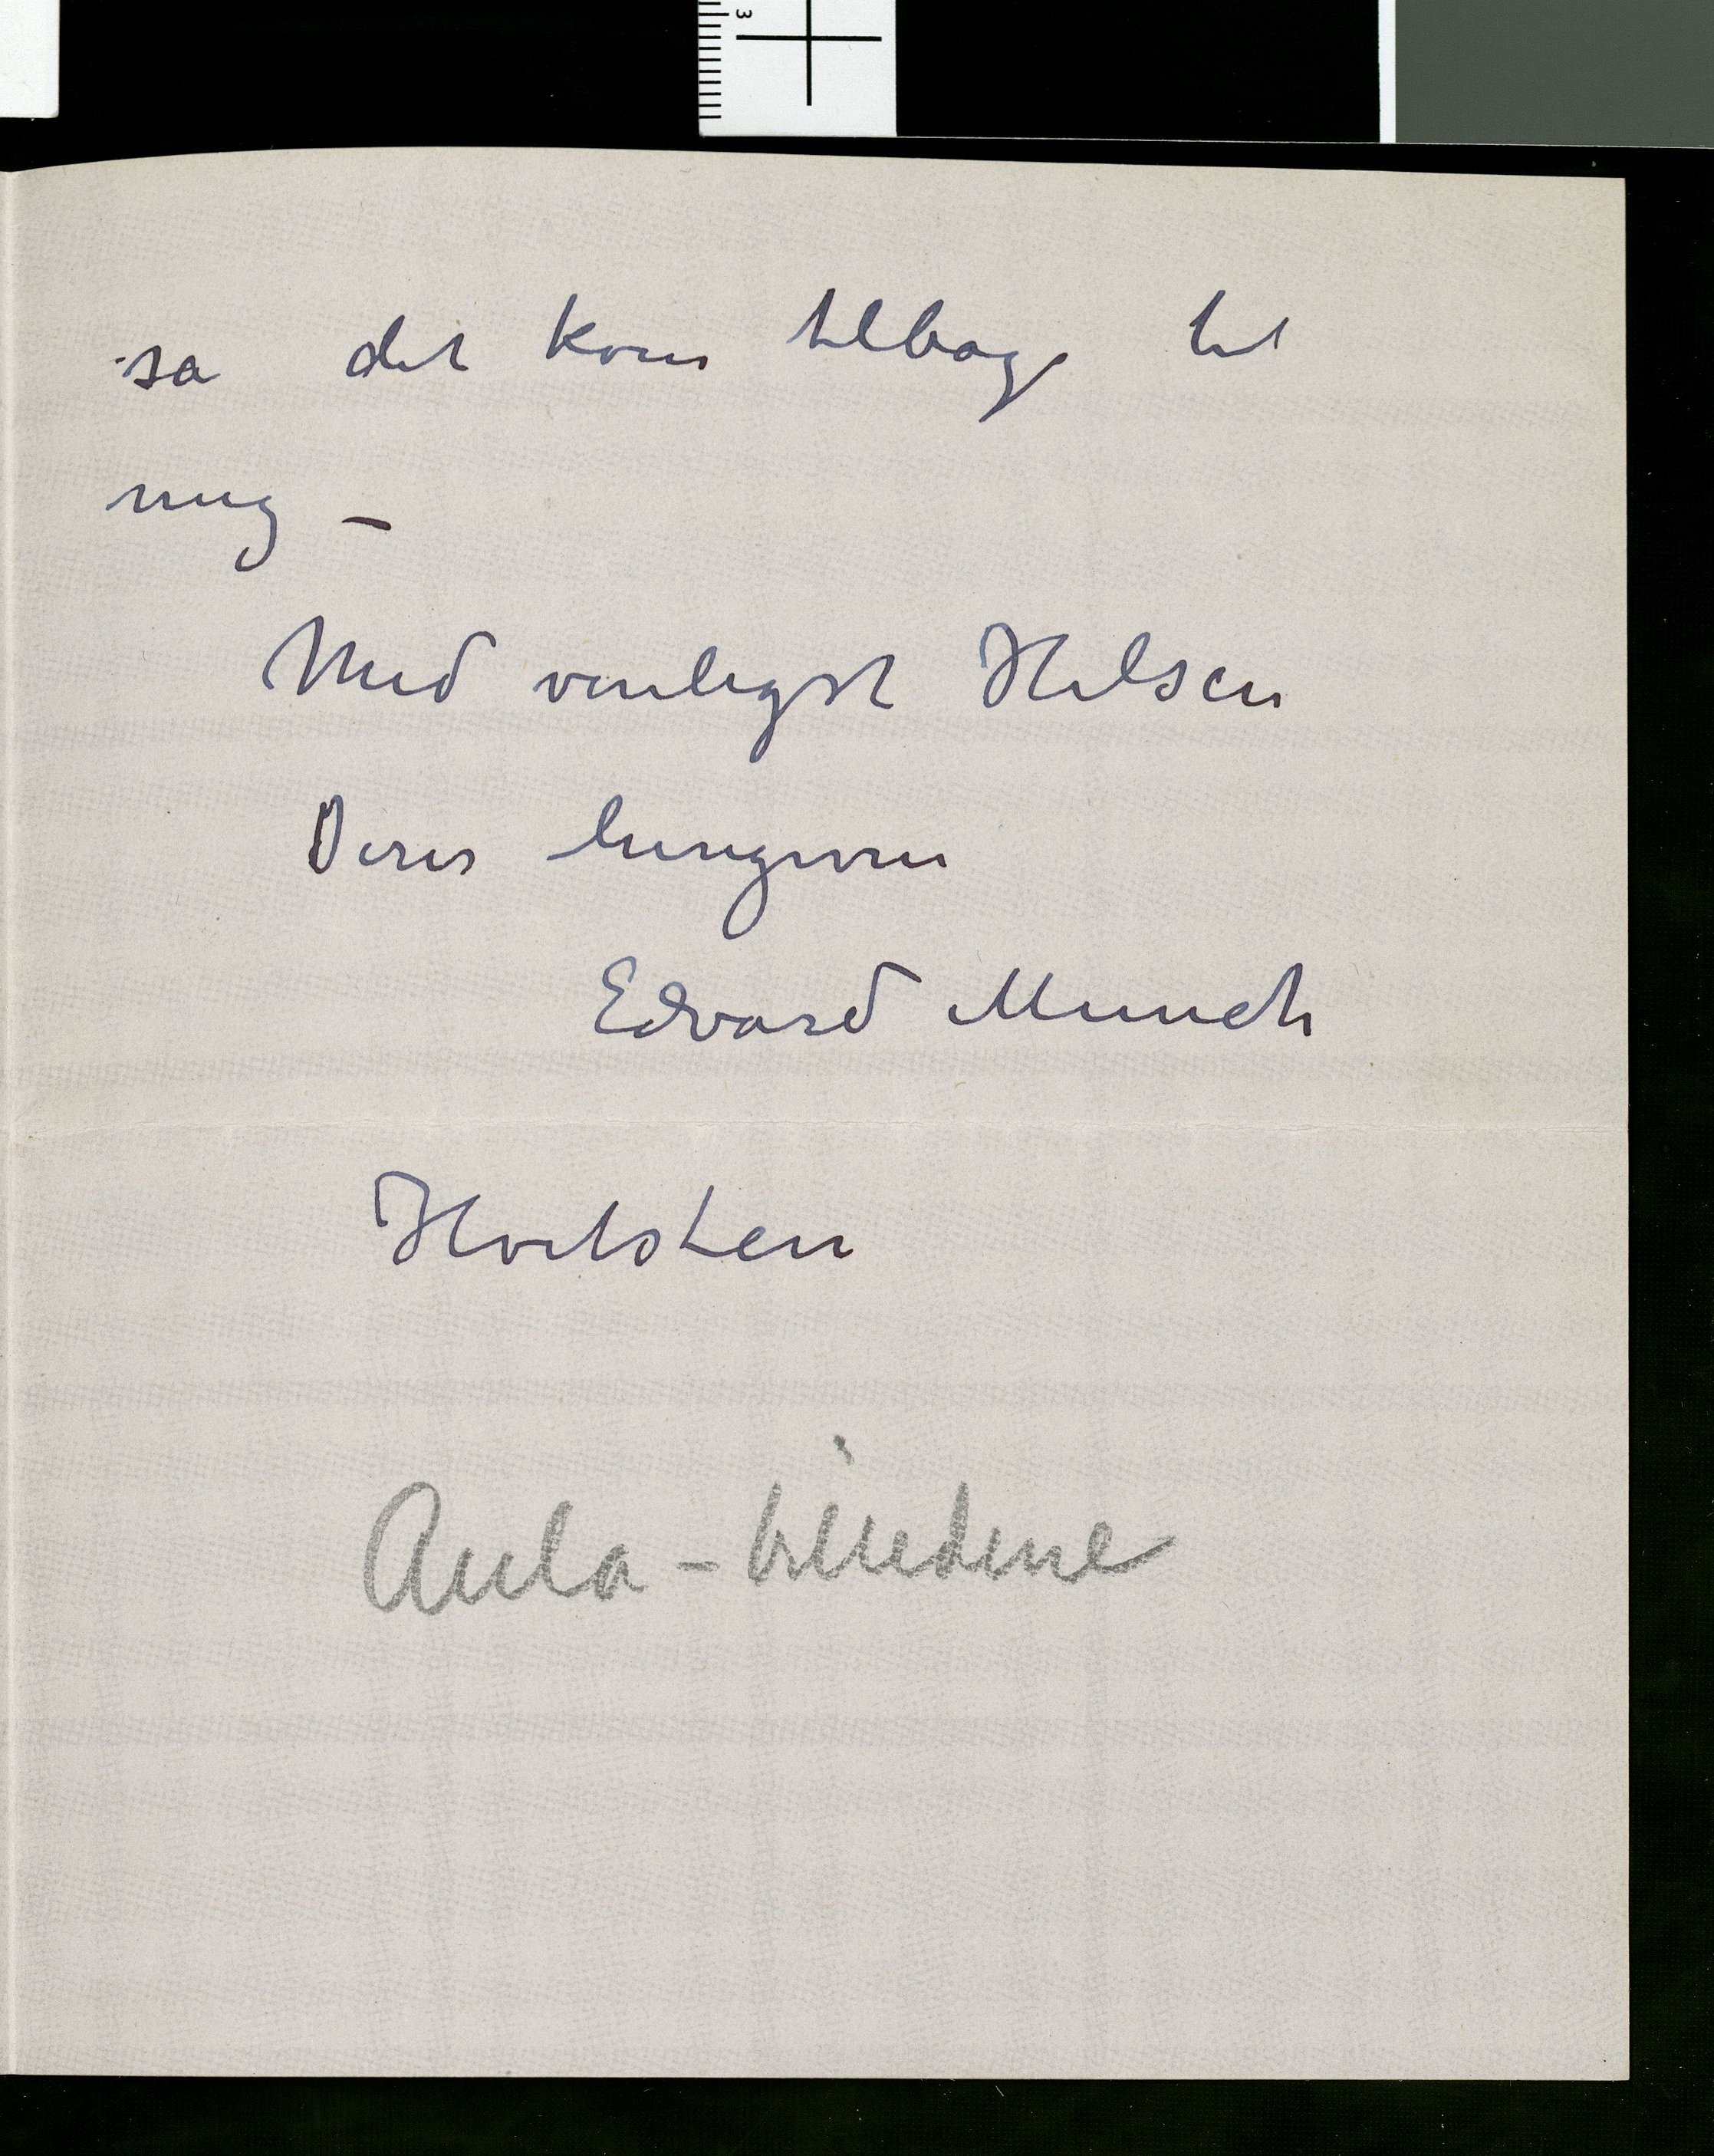 sa det kom tilbage til
mig –
Med venligst Hilsen
Deres hengivne
Edvard Munch
Hvitsten
Aula-billedene